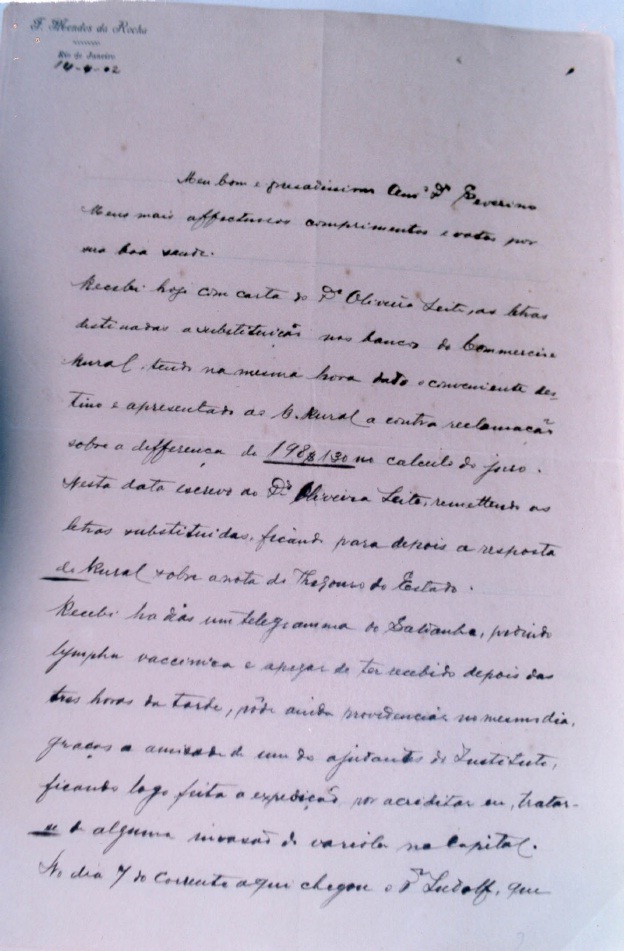 F. Mendes da Rocha
Rio de Janeiro
14-4-02
Meu bom e presadissimo Amo. Dr. Severino
Meus mais affectuosos comprimentos e votos por
sua boa saude.
Recebi hoje com carta do Dr. Oliveira Leite, as letras
destinadas a substituição nos bancos do Commercio e
Rural, tendo na mesma hora dado o conveniente des
tino e apresentado ao B. Rural a contra reclamação
sobre a differença de 198$130 no calculo do juro.
Nesta data escrevo ao Dr. Oliveira Leite, remettendo as
letras substituidas, ficando para depois a resposta
do Rural sobre a nota do Thezouro do Estado.
Recebi ha dias um telegramma do Saldanha, pedindo
lympha vaccinica e apezar de ter recebido depois das
tres horas da tarde, pôde ainda providenciar no mesmo dia,
graças a amisade de um do ajudantes do Instituto,
ficando logo feita a expedição, por acreditar eu, tratar-
se de alguma invasão de variola na Capital.
No dia 7 do corrente aqui chegou o Dr. Ludolf, que